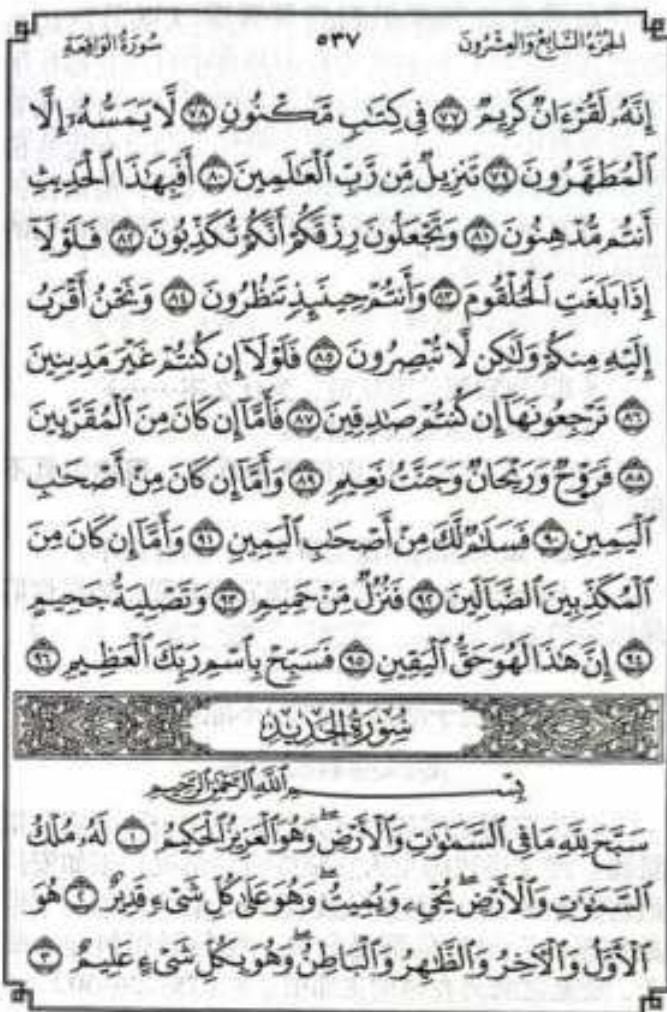 الجزء السابع والعشرون ٥٣٧ سورة الواقعة
إِنَّهُۥ لَقُرْءَانٌ كَرِيمٌ ٧٧ فِى كِتَٰبٍ مَّكْنُونٍ ٧٨ لَّا يَمَسُّهُۥٓ إِلَّا
ٱلْمُطَهَّرُونَ ٧٩ تَنزِيلٌ مِّن رَّبِّ ٱلْعَٰلَمِينَ ٨٠ أَفَبِهَٰذَا ٱلْحَدِيثِ
أَنتُم مُّدْهِنُونَ ٨١ وَتَجْعَلُونَ رِزْقَكُمْ أَنَّكُمْ تُكَذِّبُونَ ٨٢ فَلَوْلَآ
إِذَا بَلَغَتِ ٱلْحُلْقُومَ ٨٣ وَأَنتُمْ حِينَئِذٍ تَنظُرُونَ ٨٤ وَنَحْنُ أَقْرَبُ
إِلَيْهِ مِنكُمْ وَلَٰكِن لَّا تُبْصِرُونَ ٨٥ فَلَوْلَآ إِن كُنتُمْ غَيْرَ مَدِينِينَ
٨٦ تَرْجِعُونَهَآ إِن كُنتُمْ صَٰدِقِينَ ٨٧ فَأَمَّآ إِن كَانَ مِنَ ٱلْمُقَرَّبِينَ
٨٨ فَرَوْحٌ وَرَيْحَانٌ وَجَنَّتُ نَعِيمٍ ٨٩ وَأَمَّآ إِن كَانَ مِنْ أَصْحَٰبِ
ٱلْيَمِينِ ٩٠ فَسَلَٰمٌ لَّكَ مِنْ أَصْحَٰبِ ٱلْيَمِينِ ٩١ وَأَمَّآ إِن كَانَ مِنَ
ٱلْمُكَذِّبِينَ ٱلضَّآلِّينَ ٩٢ فَنُزُلٌ مِّنْ حَمِيمٍ ٩٣ وَتَصْلِيَةُ جَحِيمٍ
٩٤ إِنَّ هَٰذَا لَهُوَ حَقُّ ٱلْيَقِينِ ٩٥ فَسَبِّحْ بِٱسْمِ رَبِّكَ ٱلْعَظِيمِ ٩٦
سُورَةُ الحَدِيدِ
بِسْمِ ٱللَّهِ ٱلرَّحْمَٰنِ ٱلرَّحِيمِ
سَبَّحَ لِلَّهِ مَا فِى ٱلسَّمَٰوَٰتِ وَٱلْأَرْضِ ۖ وَهُوَ ٱلْعَزِيزُ ٱلْحَكِيمُ ١ لَهُۥ مُلْكُ
ٱلسَّمَٰوَٰتِ وَٱلْأَرْضِ ۖ يُحْىِۦ وَيُمِيتُ ۖ وَهُوَ عَلَىٰ كُلِّ شَىْءٍ قَدِيرٌ ٢ هُوَ
ٱلْأَوَّلُ وَٱلْءَاخِرُ وَٱلظَّٰهِرُ وَٱلْبَاطِنُ ۖ وَهُوَ بِكُلِّ شَىْءٍ عَلِيمٌ ٣